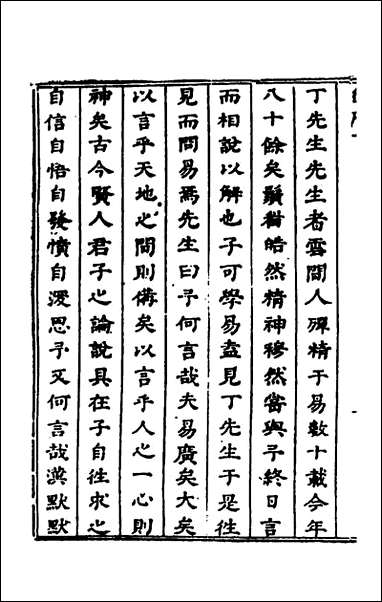 丁先生先生者雲間人殫精于易數十載今年
八十餘矣鬚髮皓然精神穆然嘗與予終日言
而相說以解也子可學易盍見丁先生于是往
見而問易焉先生曰予何言哉夫易廣矣大矣
以言乎天地之間則備矣以言乎人之一心則
神矣古今賢人君子之論說具在子自往求之
自信自悟自發憤自深思予又何言哉漢默默